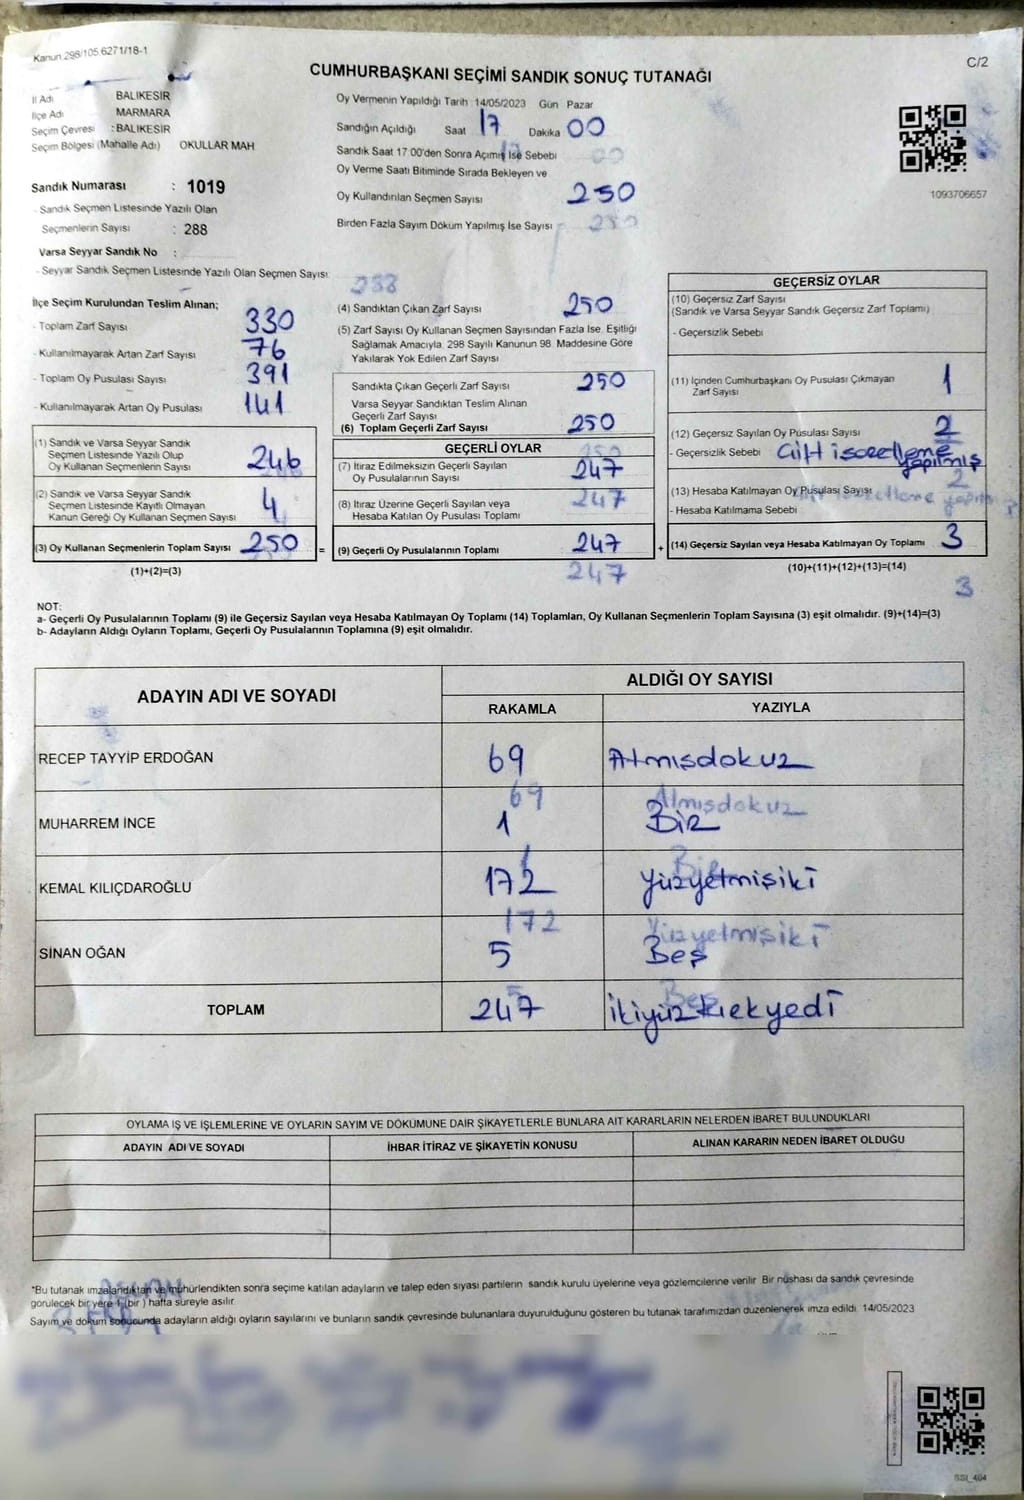 Kanun.298/105.6271/18-1
C/2
CUMHURBAŞKANI SEÇİMİ SANDIK SONUÇ TUTANAĞI
İl Adı BALIKESİR
İlçe Adı MARMARA
Seçim Çevresi : BALIKESİR
Seçim Bölgesi (Mahalle Adı) OKULLAR MAH
Sandık Numarası : 1019
- Sandık Seçmen Listesinde Yazılı Olan
Seçmenlerin Sayısı : 288
Varsa Seyyar Sandık No :
- Seyyar Sandık Seçmen Listesinde Yazılı Olan Seçmen Sayısı:
Oy Vermenin Yapıldığı Tarih : 14/05/2023 Gün Pazar
Sandığın Açıldığı Saat 17 Dakika 00
Sandık Saat 17:00'den Sonra Açılmış İse Sebebi
Oy Verme Saati Bitiminde Sırada Bekleyen ve
Oy Kullandırılan Seçmen Sayısı 250
Birden Fazla Sayım Döküm Yapılmış İse Sayısı
1093706657
İlçe Seçim Kurulundan Teslim Alınan;
- Toplam Zarf Sayısı 330
- Kullanılmayarak Artan Zarf Sayısı 76
- Toplam Oy Pusulası Sayısı 391
- Kullanılmayarak Artan Oy Pusulası 141
(1) Sandık ve Varsa Seyyar Sandık
Seçmen Listesinde Yazılı Olup
Oy Kullanan Seçmenlerin Sayısı 246
(2) Sandık ve Varsa Seyyar Sandık
Seçmen Listesinde Kayıtlı Olmayan
Kanun Gereği Oy Kullanan Seçmen Sayısı 4
(3) Oy Kullanan Seçmenlerin Toplam Sayısı 250 =
(1)+(2)=(3)
288
(4) Sandıktan Çıkan Zarf Sayısı 250
(5) Zarf Sayısı Oy Kullanan Seçmen Sayısından Fazla İse, Eşitliği
Sağlamak Amacıyla, 298 Sayılı Kanunun 98. Maddesine Göre
Yakılarak Yok Edilen Zarf Sayısı
Sandıkta Çıkan Geçerli Zarf Sayısı 250
Varsa Seyyar Sandıktan Teslim Alınan
Geçerli Zarf Sayısı
(6) Toplam Geçerli Zarf Sayısı 250
GEÇERLİ OYLAR
(7) İtiraz Edilmeksizin Geçerli Sayılan
Oy Pusulalarının Sayısı 247
(8) İtiraz Üzerine Geçerli Sayılan veya
Hesaba Katılan Oy Pusulası Toplamı 247
(9) Geçerli Oy Pusulalarının Toplamı 247 +
247
GEÇERSİZ OYLAR
(10) Geçersiz Zarf Sayısı
(Sandık ve Varsa Seyyar Sandık Geçersiz Zarf Toplamı)
- Geçersizlik Sebebi
(11) İçinden Cumhurbaşkanı Oy Pusulası Çıkmayan
Zarf Sayısı 1
(12) Geçersiz Sayılan Oy Pusulası Sayısı 2
- Geçersizlik Sebebi Çift işaretleme
yapılmış
2
(13) Hesaba Katılmayan Oy Pusulası Sayısı
- Hesaba Katılmama Sebebi
(14) Geçersiz Sayılan veya Hesaba Katılmayan Oy Toplamı 3
(10)+(11)+(12)+(13)=(14)
3
NOT:
a- Geçerli Oy Pusulalarının Toplamı (9) ile Geçersiz Sayılan veya Hesaba Katılmayan Oy Toplamı (14) Toplamları, Oy Kullanan Seçmenlerin Toplam Sayısına (3) eşit olmalıdır. (9)+(14)=(3)
b- Adayların Aldığı Oyların Toplamı, Geçerli Oy Pusulalarının Toplamına (9) eşit olmalıdır.
ADAYIN ADI VE SOYADI ALDIĞI OY SAYISI
RAKAMLA YAZIYLA
RECEP TAYYİP ERDOĞAN 69 Atmışdokuz
69 Atmışdokuz
MUHARREM İNCE 1 Bir
1 Bir
KEMAL KILIÇDAROĞLU 172 yüzyetmişiki
172 Yüzyetmişiki
SİNAN OĞAN 5 Beş
5 Beş
TOPLAM 247 ikiyüzkırkyedi
OYLAMA İŞ VE İŞLEMLERİNE VE OYLARIN SAYIM VE DÖKÜMÜNE DAİR ŞİKAYETLERLE BUNLARA AİT KARARLARIN NELERDEN İBARET BULUNDUKLARI
ADAYIN ADI VE SOYADI İHBAR İTİRAZ VE ŞİKAYETİN KONUSU ALINAN KARARIN NEDEN İBARET OLDUĞU
*Bu tutanak imzalandıktan ve mühürlendikten sonra seçime katılan adayların ve talep eden siyasi partilerin sandık kurulu üyelerine veya gözlemcilerine verilir. Bir nüshası da sandık çevresinde
görülecek bir yere 1 (bir) hafta süreyle asılır.
Sayım ve döküm sonucunda adayların aldığı oyların sayılarını ve bunların sandık çevresinde bulunanlara duyurulduğunu gösteren bu tutanak tarafımızdan düzenlenerek imza edildi. 14/05/2023
SSI_404